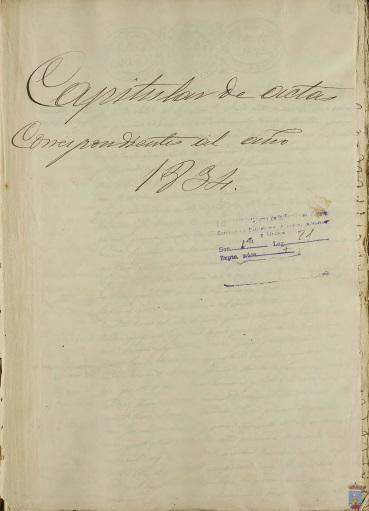 Capitular de actas
Correspondientes al año
1834.
Sec. 1ª Leg. 71
Expte. núm. 1